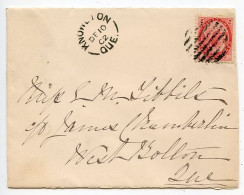 KNOWLTON
DE 10
02
QUE.
Miss L. M. Tibbits
c/o James Chamberlin
West Bolton
Que